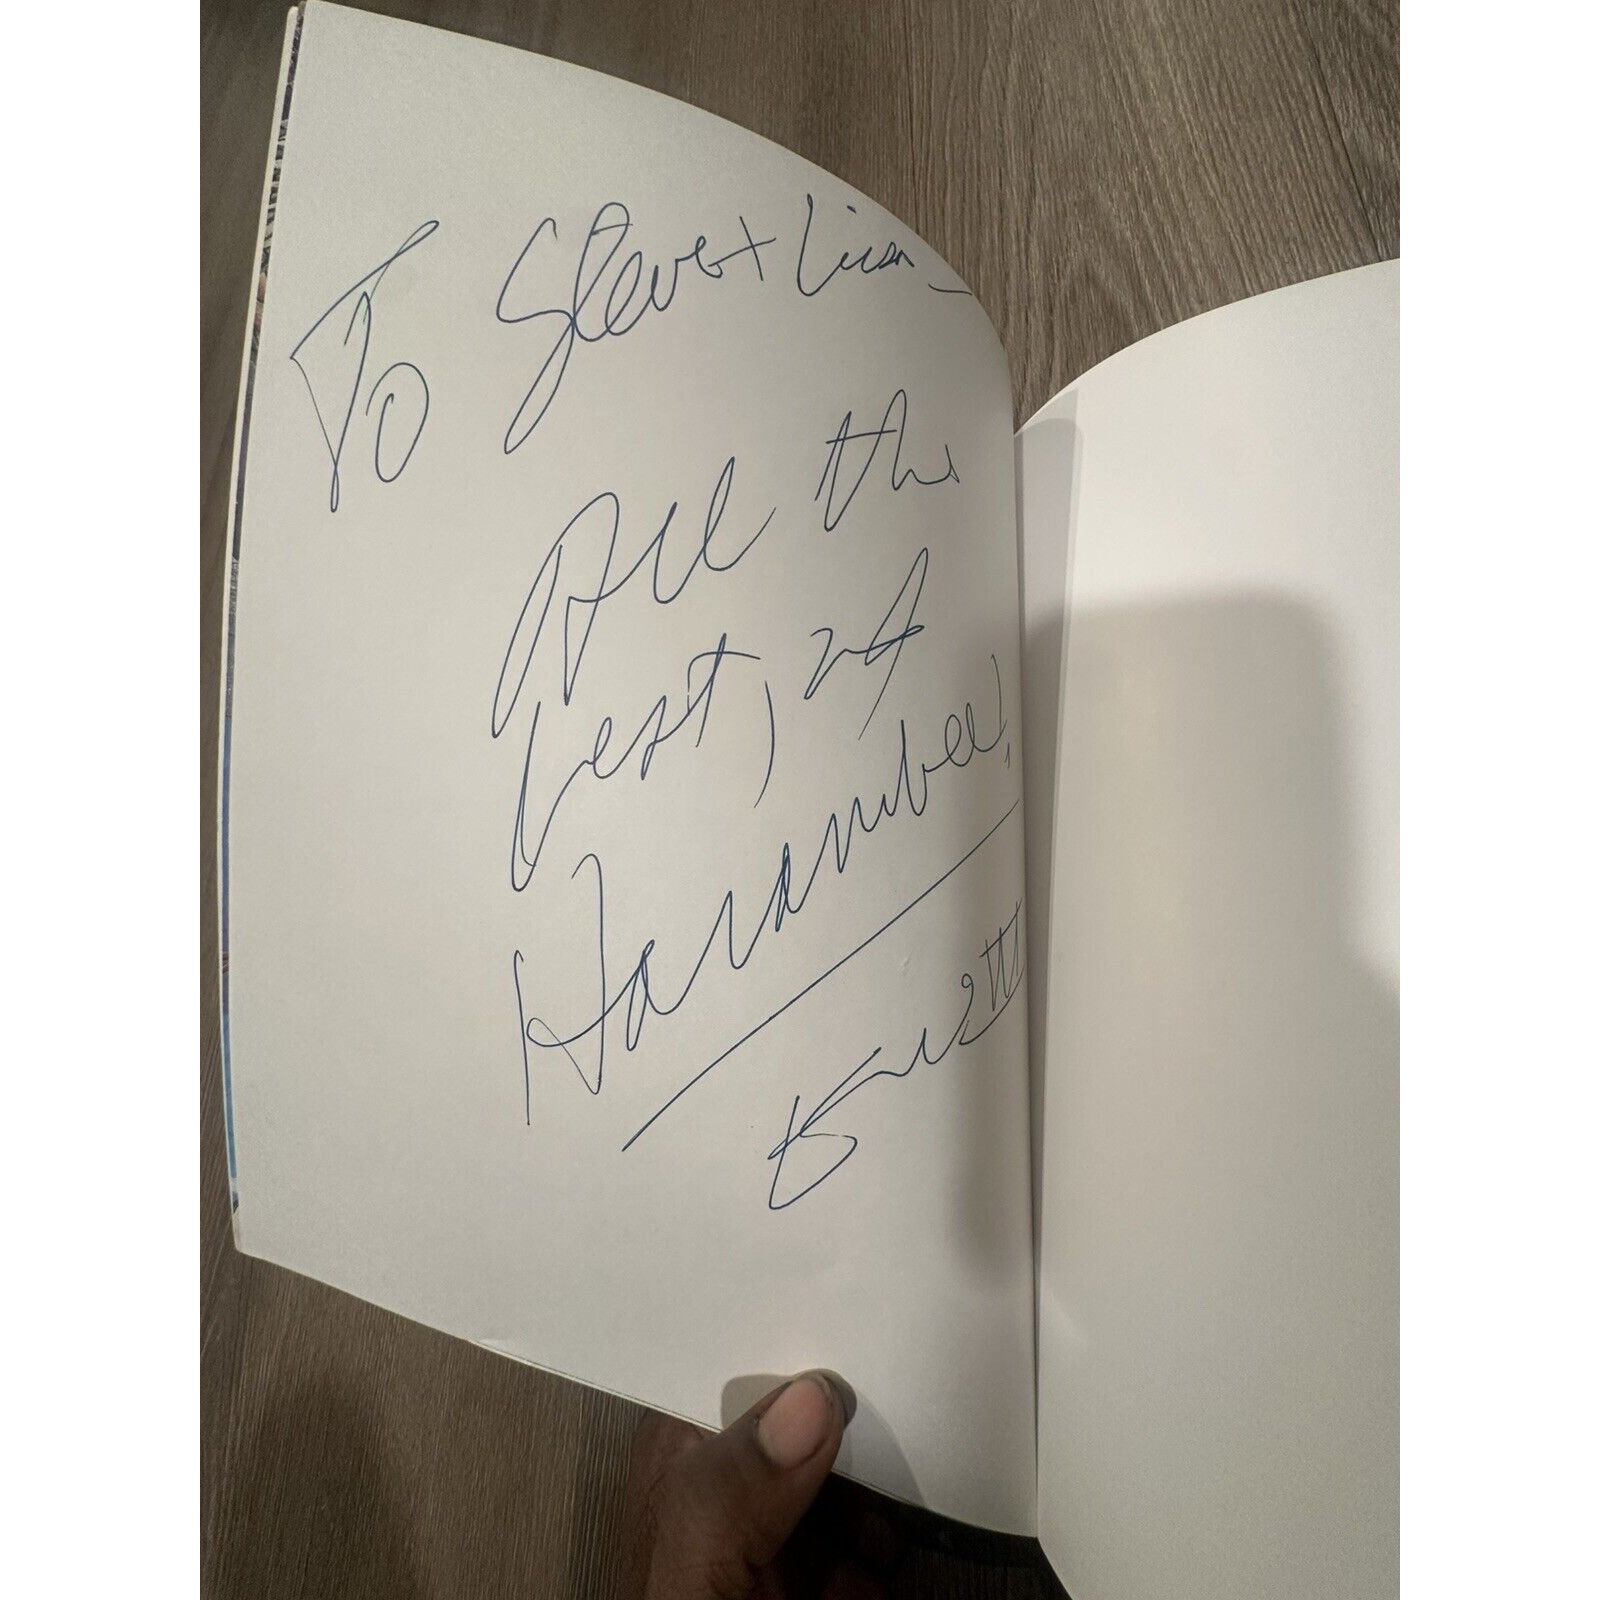 To Steve + Lisa,
All the
best, at
Harambee!
III